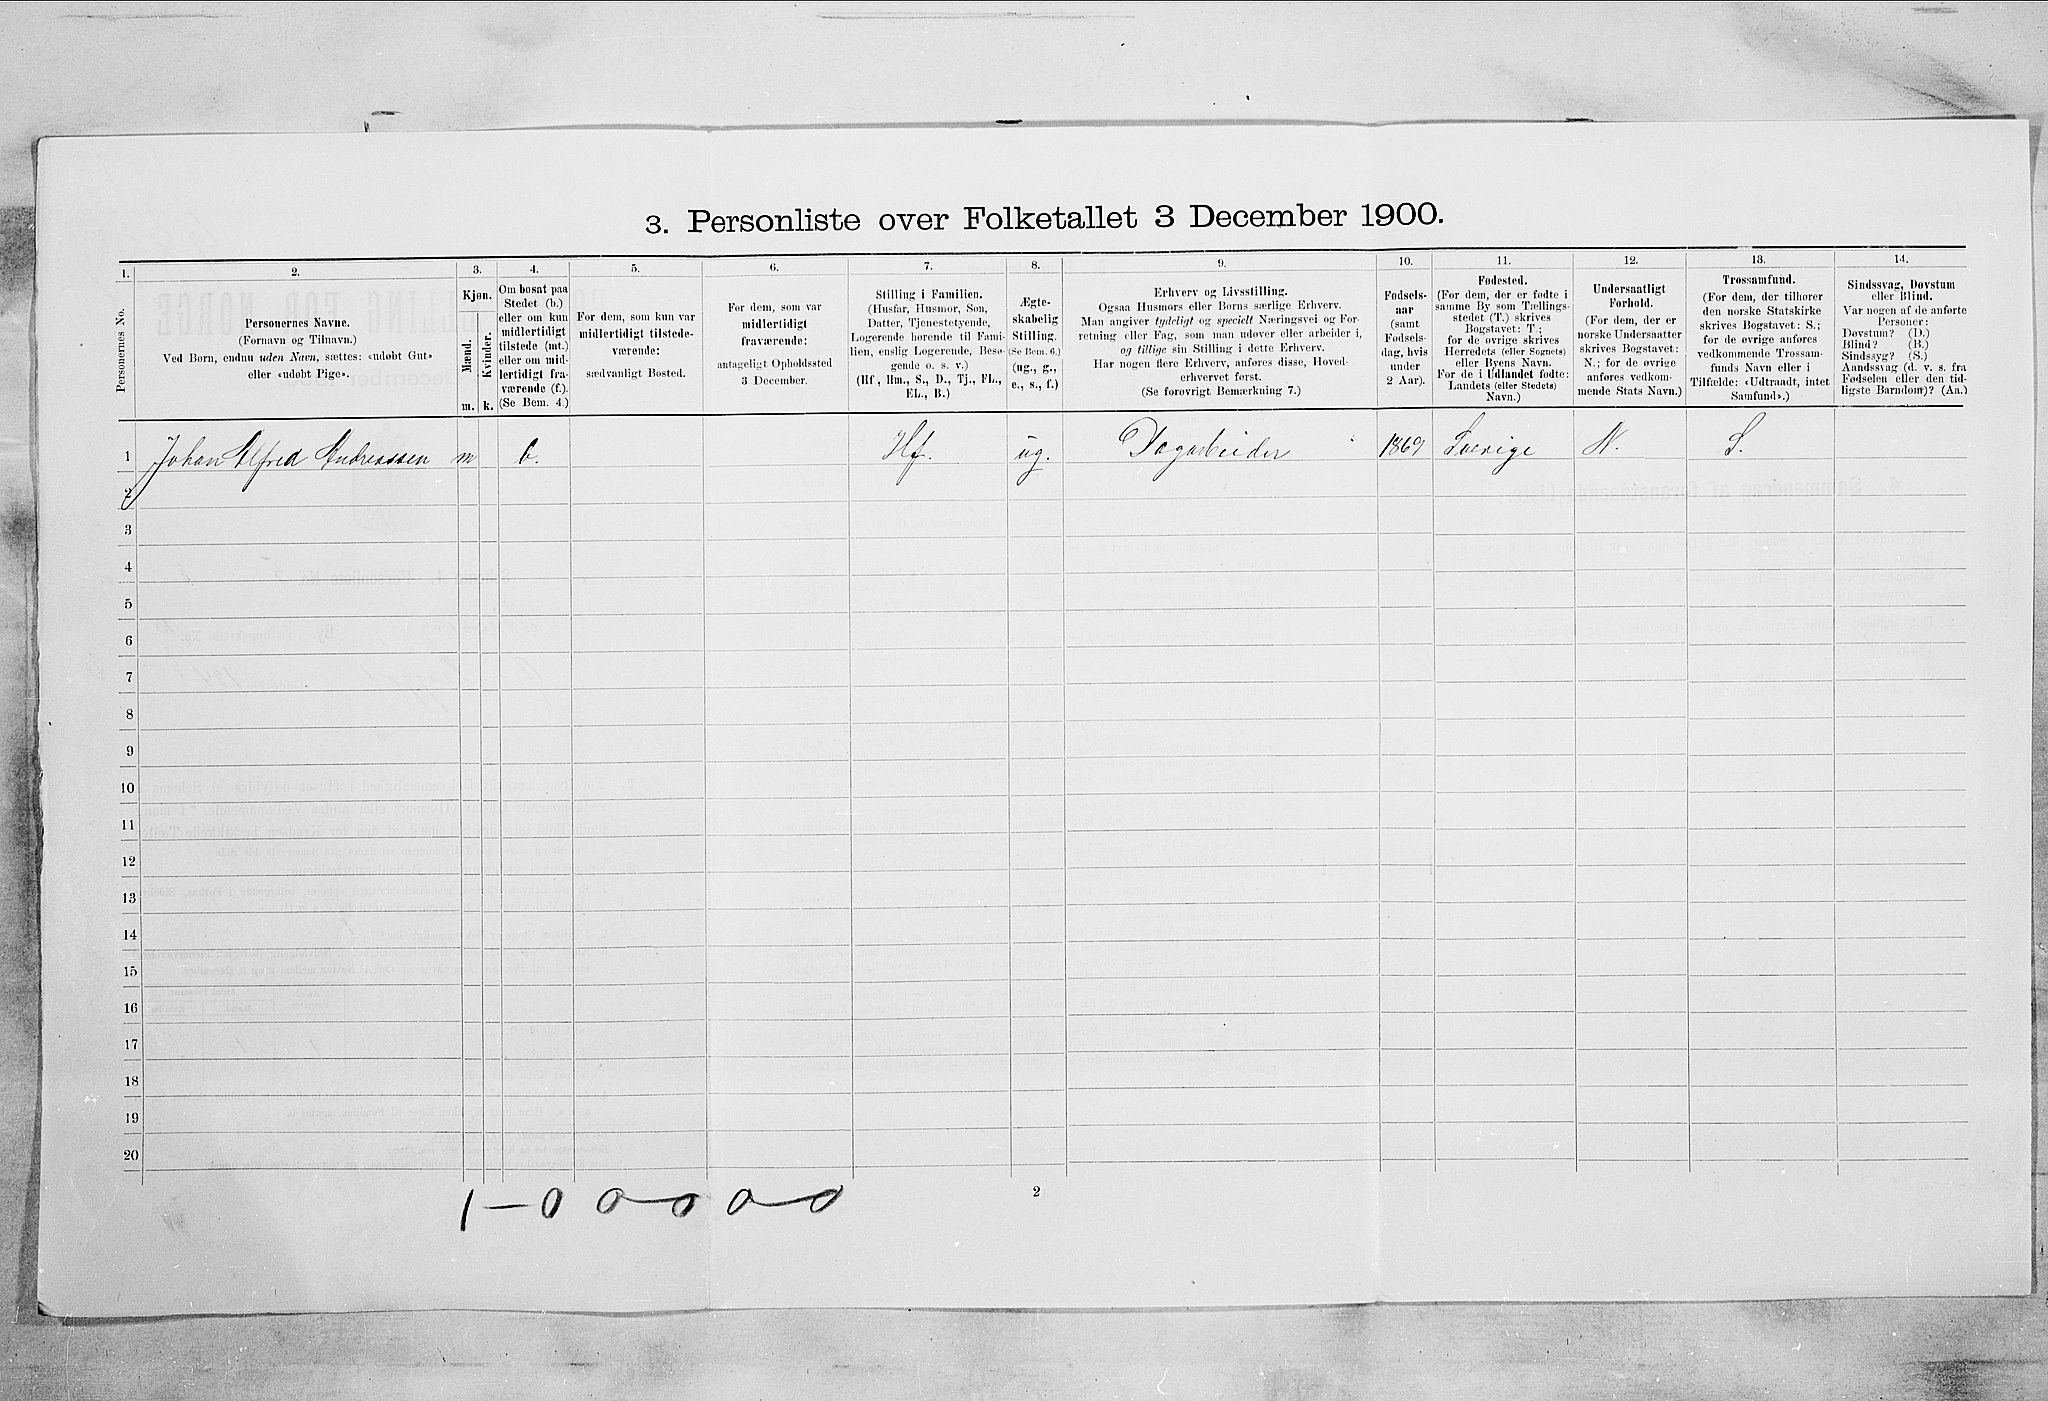 3. Personliste over Folketallet 3 December 1900.
1.
Personernes No.
2.
Personernes Navne.
(Fornavn og Tilnavn.)
Ved Børn, endnu uden Navn, sættes: «udøbt Gut»
eller «udøbt Pige».
3.
Kjøn.
Mænd.
Kvinder.
m.
k.
4.
Om bosat paa
Stedet (b.)
eller om kun
midlertidigt
tilstede (mt.)
eller om mid-
lertidigt fra-
værende (f.).
(Se Bem. 4.)
5.
For dem, som kun var
midlertidigt tilstede-
værende:
sædvanligt Bosted.
6.
For dem, som var
midlertidigt
fraværende:
antageligt Opholdssted
3 December.
7.
Stilling i Familien.
(Husfar, Husmor, Søn,
Datter, Tjenestetyende,
Logerende hørende til Fami-
lien, enslig Logerende, Besø-
gende o. s. v.)
(Hf., Hm., S., D., Tj., FL.,
EL., B.)
8.
Ægte-
skabelig
Stilling.
(Se Bem. 6.)
(ug., g.,
e., s., f.)
9.
Erhverv og Livsstilling.
Ogsaa Husmors eller Børns særlige Erhverv.
Man angiver tydeligt og specielt Næringsvei og For-
retning eller Fag, som man udøver eller arbeider i,
og tillige sin Stilling i dette Erhverv.
Har nogen flere Erhverv, anføres disse, Hoved-
erhvervet først.
(Se forøvrigt Bemærkning 7.)
10.
Fødsels-
aar
(samt
Fødsels-
dag, hvis
under
2 Aar).
11.
Fødested.
(For dem, der er fødte i
samme By som Tællings-
stedet (T.) skrives
Bogstavet: T.;
for de øvrige skrives
Herredets (eller Sognets)
eller Byens Navn.
For de i Udlandet fødte:
Landets (eller Stedets)
Navn.)
12.
Undersaatligt
Forhold.
(For dem, der er
norske Undersaatter
skrives Bogstavet:
N.; for de øvrige
anføres vedkom-
mende Stats Navn.)
13.
Trossamfund.
(For dem, der tilhører
den norske Statskirke
skrives Bogstavet: S.;
for de øvrige anføres
vedkommende Trossam-
funds Navn eller i
Tilfælde: «Udtraadt, intet
Samfund».)
14.
Sindssvag, Døvstum
eller Blind.
Var nogen af de anførte
Personer:
Døvstum? (D.)
Blind? (B.)
Sindssyg? (S.)
Aandssvag (d. v. s. fra
Fødselen eller den tid-
ligste Barndom)? (Aa.)
1 Johan Alfred Andreassen m b. Hf. ug. Dagarbeider 1869 Sverige N. S.
2
3
4
5
6
7
8
9
10
11
12
13
14
15
16
17
18
19
20
1-0 0-0 0-0
2